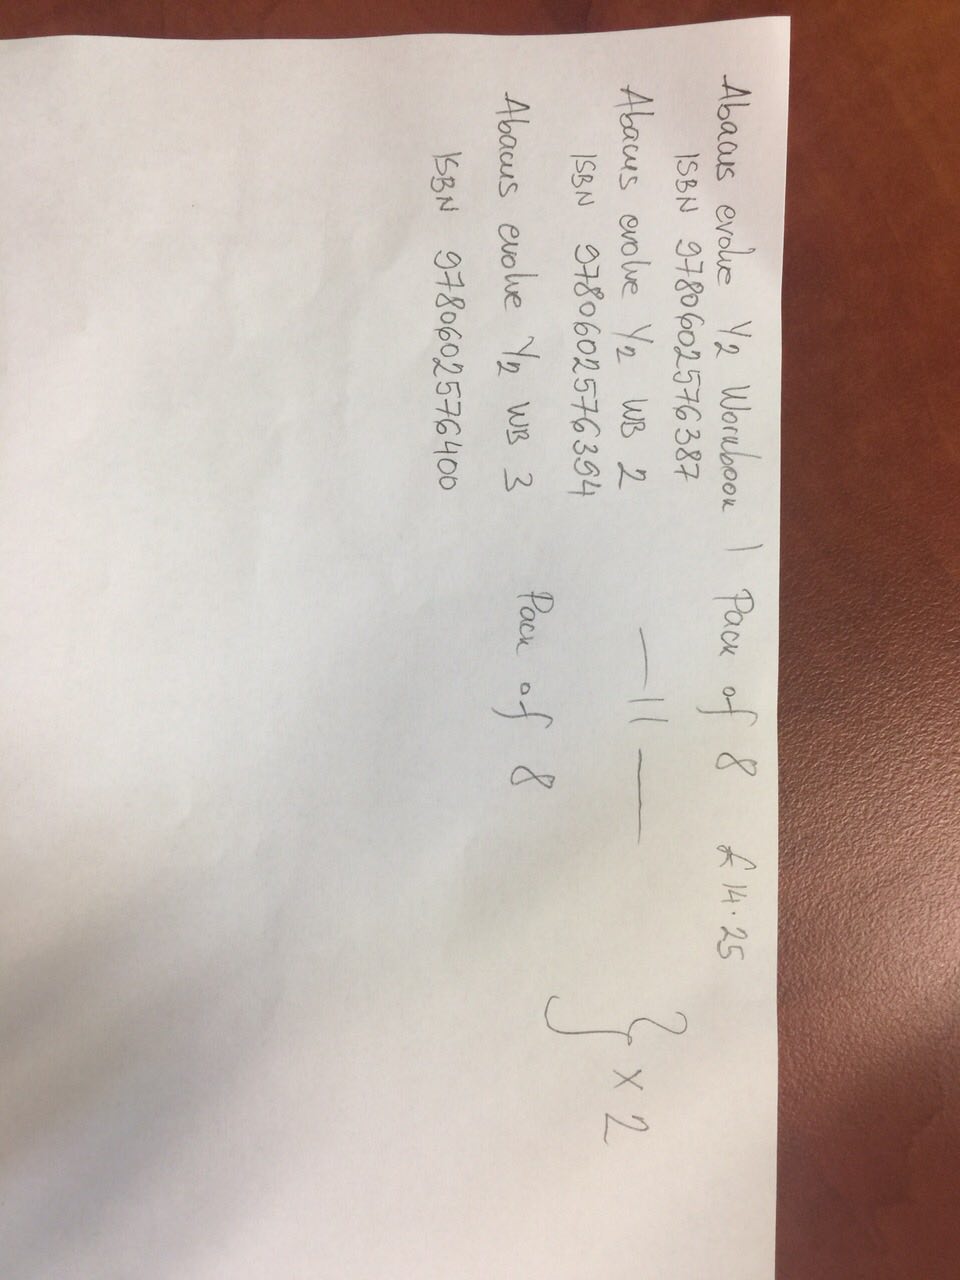 Abacus evolve Y2 Workbook 1 Pack of 8 £14.25
ISBN 9780602576387
Abacus evolve Y2 WB 2 —||— } x 2
ISBN 9780602576394
Abacus evolve Y2 WB 3 Pack of 8
ISBN 9780602576400